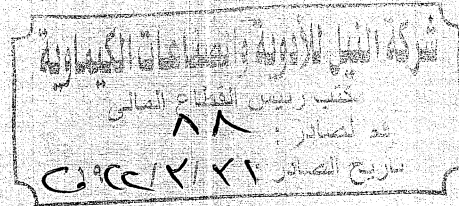 شركة النيل للأدوية والصناعات الكيماوية
مكتب رئيس القطاع المالى
الصادر : ٨٨
تاريخ الصادر : ٣١ / ٣ /